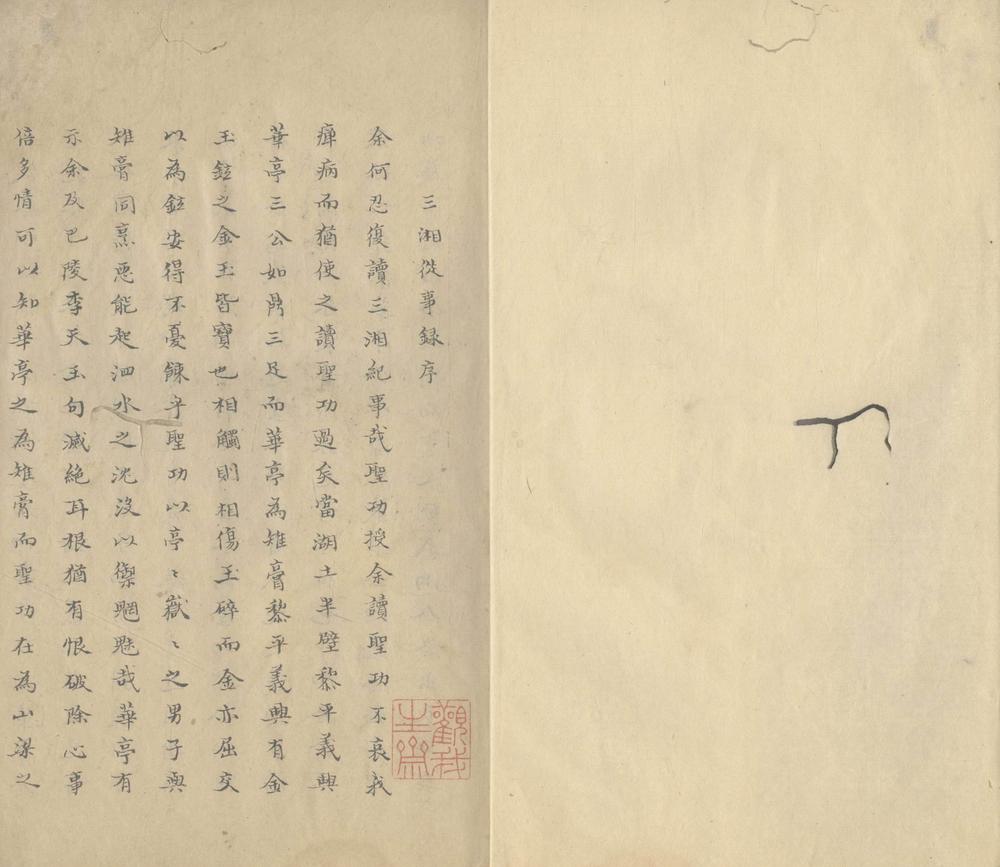 三湘從事録序
余何忍復讀三湘紀事哉聖功授余讀聖功不哀我
瘅病而猶使之讀聖功過矣當湖土半壁黎平義興
華亭三公如鼎三足而華亭為雉膏黎平義興有金
玉鉉之金玉皆寶也相觸則相傷玉碎而金亦屈交
以為鉉安得不憂餗乎聖功以亭〻嶽〻之男子與
雉膏同烹惡能起泗水之沈没以禦魍魅哉華亭有
示余及巴陵李天玉句滅絶耳根猶有恨破除心事
倍多情可以知華亭之為雉膏而聖功在為山梁之
觀我生齋